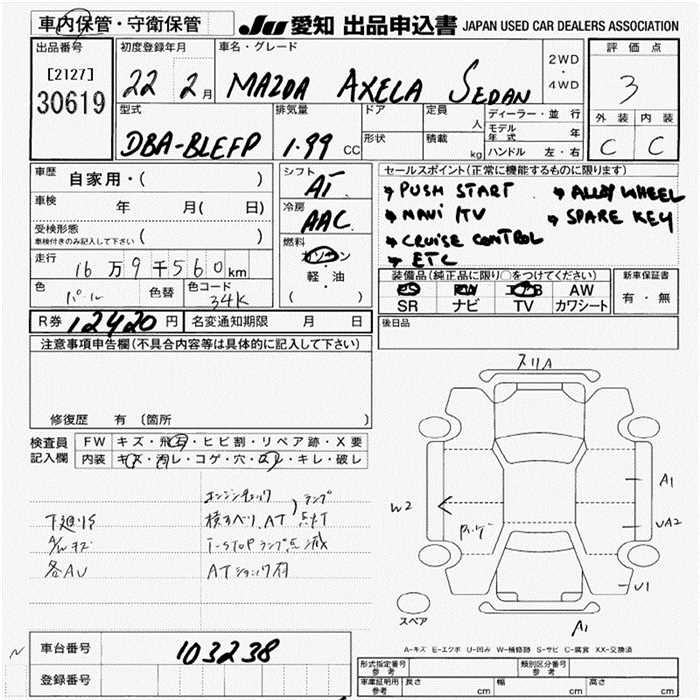 車内保管・守衛保管
JU 愛知 出品申込書 JAPAN USED CAR DEALERS ASSOCIATION
出品番号
[2127]
30619
初度登録年月
22 2月
車名・グレード
MAZDA AXELA SEDAN
2WD
・
4WD
評価点
3
外装 内装
C C
型式
DBA-BLEFP
排気量
1.99 CC
ドア
形状
定員
人
積載
kg
ディーラー・並行
モデル年式 年
ハンドル 左・右
車歴
自家用・( )
車検
年 月( 日)
受検形態
車検付きのみ記入して下さい ( )
走行
16万9千560km
色
パール
色替
色コード
34K
シフト
AT
冷房
AAC
燃料
ガソリン
・
軽・油
( )
セールスポイント(正常に機能するものに限ります)
PUSH START
ALLOY WHEEL
NAVI /TV
SPARE KEY
CRUISE CONTROL
ETC
装備品(純正品に限り○をつけてください)
AW
SR ナビ TV カワシート
新車保証書
有・無
R券 12420円
名変通知期限 月 日
後日品
注意事項申告欄(不具合内容等は具体的に記入して下さい)
修復歴 有 〔箇所
検査員記入欄
FW キズ・飛石・ヒビ割・リペア跡・X要
内装 キズ・汚レ・コゲ・穴・スレ・キレ・破レ
エンジンチェック
ランプ
下廻りS
横すべり、AT
点灯
A/Wキズ
i-STOPランプ点滅
各AU
ATショック有
スリA
A1
W2
UA2
U1
スペア
A1
A-キズ E-エクボ U-凹み W-補修跡 S-サビ C-腐食 XX-交換済
車台番号
103238
登録番号
形式指定番号
参考
類別区分番号
参考
車庫証明用
参考
長さ cm
幅 cm
高さ cm